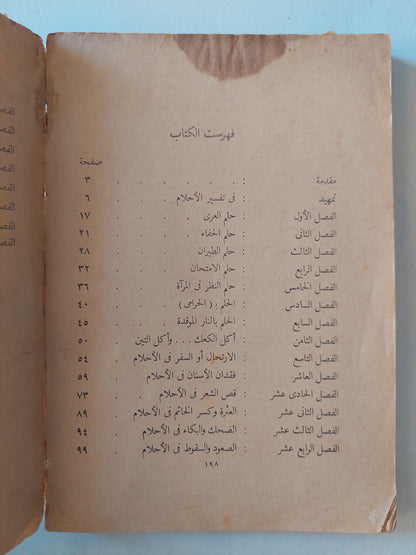 فهرست الكتاب
صفحة
مقدمة : . . . . ٣
تمهيد : فى تفسير الأحلام . . ٦
الفصل الأول : حلم العرى . . . ١٧
الفصل الثانى : حلم الحفاء . . . ٢١
الفصل الثالث : حلم الطيران . . . ٢٨
الفصل الرابع : حلم الامتحان . . . ٣٢
الفصل الخامس : حلم النظر فى المرآة . . ٣٦
الفصل السادس : الحلم ، ( الحرامى ) . . ٤٠
الفصل السابع : الحلم بالنار الموقدة . . ٤٥
الفصل الثامن : أكل الكعك . . . وأكل التين . ٥٠
الفصل التاسع : الارتحال أو السفر فى الأحلام . ٥٤
الفصل العاشر : فقدان الأسنان فى الأحلام . ٥٩
الفصل الحادى عشر : قص الشعر فى الأحلام . . ٧٣
الفصل الثانى عشر : العثرة وكسر الخاتم فى الأحلام . ٨٩
الفصل الثالث عشر : الضحك والبكاء فى الأحلام . ٩٤
الفصل الرابع عشر : الصعود والسقوط فى الأحلام . ٩٩
١٩٨
الفصل
الفصل
الفصل
الفصل
الفصل
الفصل
الفصل